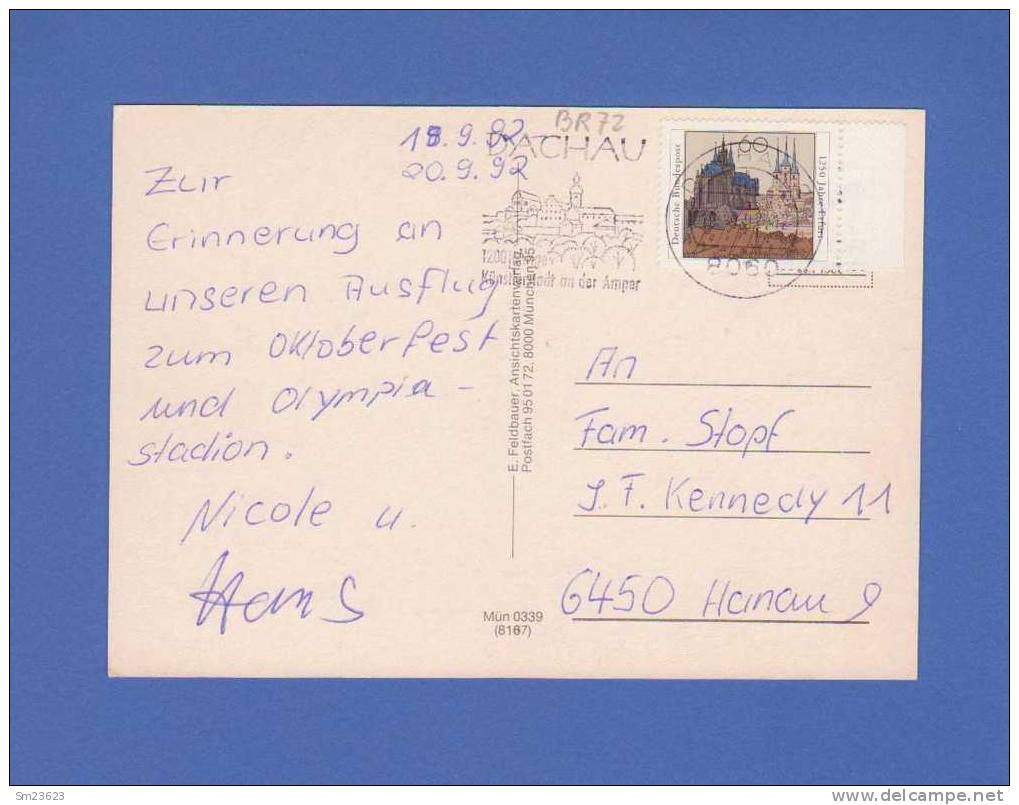 BR72
18.9.92 -
20.9.92
Zur
Erinnerung an
unseren Ausflug
zum Oktoberfest
und Olympia-
stadion.
Nicole u.
Hans
DACHAU
1200
Künstlerstadt an der Amper
60
Deutsche Bundespost
1250 Jahre Erfurt
8060
E. Feldbauer, Ansichtskartenverlag,
Postfach 95 01 72, 8000 München 95
An
Fam. Stopf
J. F. Kennedy 11
6450 Hanau 9
Mün 0339
(8167)
Sm23623
delcampe.net